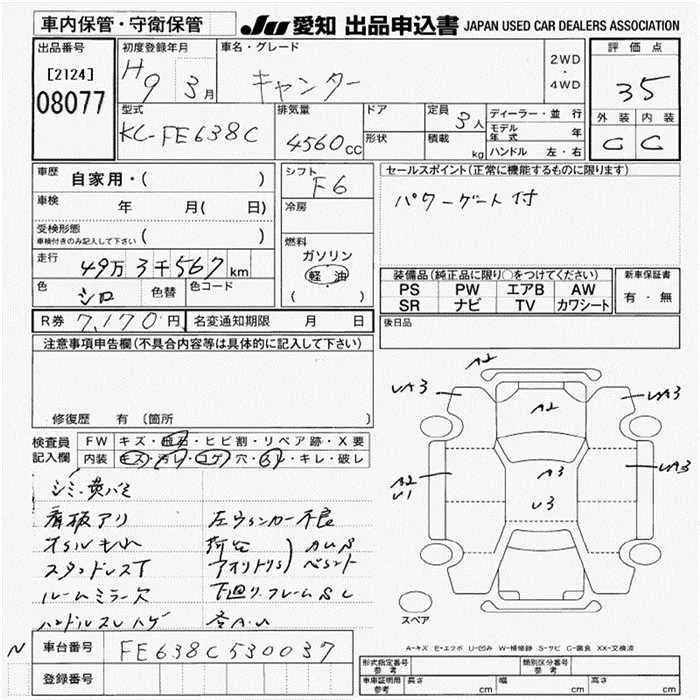 車内保管・守衛保管
JU 愛知 出品申込書 JAPAN USED CAR DEALERS ASSOCIATION
出品番号
[2124]
08077
初度登録年月
H9 3月
車名・グレード
キャンター
2WD
・
4WD
評価点
35
外装 内装
C C
型式
KC-FE638C
排気量
4560cc
ドア
形状
定員 3人
積載 kg
ディーラー・並行
モデル年式 年
ハンドル 左・右
車歴 自家用・( )
車検 年 月( 日)
受検形態
車検付きのみ記入して下さい ( )
走行 49万3千567km
色 シロ 色替 色コード
R券 7,170円 名変通知期限 月 日
シフト
F6
冷房
燃料
ガソリン
軽油
( )
セールスポイント(正常に機能するものに限ります)
パワーゲート付
装備品(純正品に限り○をつけてください)
PS PW エアB AW
SR ナビ TV カワシート
新車保証書
有・無
後日品
注意事項申告欄(不具合内容等は具体的に記入して下さい)
修復歴 有 〔箇所 〕
検査員
記入欄
FW キズ・飛石・ヒビ割・リペア跡・X要
内装 キズ・汚レ・コゲ・穴・スレ・キレ・破レ
シミ・黄バミ
看板アリ
オイルもれ
スタンドレス下
ルームミラー欠
ハンドルスレハゲ
左ウィンカー不良
荷台
アオリトリS
AUS
下廻り.フレームSC
A2
UA3
UA3
A2
A2
U1
A3
U3
UA3
スペア
A-キズ E-エクボ U-凹み W-補修跡 S-サビ C-腐食 XX-交換済
N 車台番号 FE638C530037
登録番号
形式指定番号
参考
類別区分番号
参考
車庫証明用
参考
長さ cm 幅 cm 高さ cm